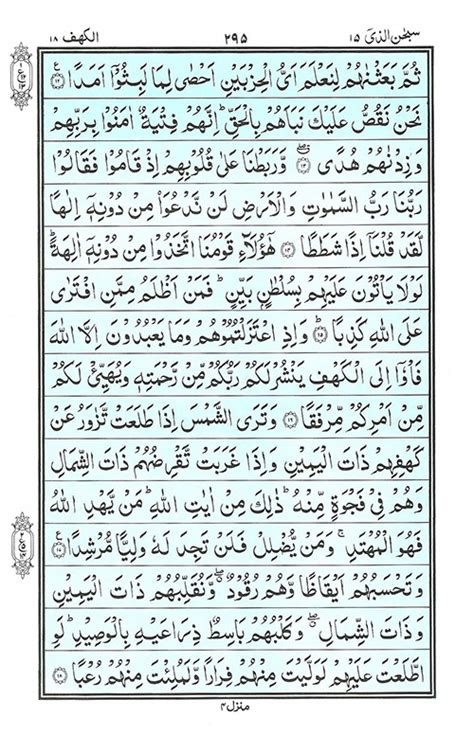 سبحٰن الذیٓ ۱۵ ۲۹۵ الکھف ۱۸
ثُمَّ بَعَثْنٰهُمْ لِنَعْلَمَ اَیُّ الْحِزْبَیْنِ اَحْصٰی لِمَا لَبِثُوْۤا اَمَدًا ۝۱۲
نَحْنُ نَقُصُّ عَلَیْكَ نَبَاَهُمْ بِالْحَقِّ ؕ اِنَّهُمْ فِتْیَةٌ اٰمَنُوْا بِرَبِّهِمْ
وَزِدْنٰهُمْ هُدًی ۝۱۳ وَّرَبَطْنَا عَلٰی قُلُوْبِهِمْ اِذْ قَامُوْا فَقَالُوْا
رَبُّنَا رَبُّ السَّمٰوٰتِ وَالْاَرْضِ لَنْ نَّدْعُوَا۠ مِنْ دُوْنِهٖۤ اِلٰهًا
لَّقَدْ قُلْنَاۤ اِذًا شَطَطًا ۝۱۴ هٰۤؤُلَآءِ قَوْمُنَا اتَّخَذُوْا مِنْ دُوْنِهٖۤ اٰلِهَةً ؕ
لَوْلَا یَاْتُوْنَ عَلَیْهِمْ بِسُلْطٰنٍۭ بَیِّنٍ ؕ فَمَنْ اَظْلَمُ مِمَّنِ افْتَرٰی
عَلَی اللّٰهِ كَذِبًا ۝۱۵ وَاِذِ اعْتَزَلْتُمُوْهُمْ وَمَا یَعْبُدُوْنَ اِلَّا اللّٰهَ
فَاْوٗۤا اِلَی الْكَهْفِ یَنْشُرْ لَكُمْ رَبُّكُمْ مِّنْ رَّحْمَتِهٖ وَیُهَیِّئْ لَكُمْ
مِّنْ اَمْرِكُمْ مِّرْفَقًا ۝۱۶ وَتَرَی الشَّمْسَ اِذَا طَلَعَتْ تَّزٰوَرُ عَنْ
كَهْفِهِمْ ذَاتَ الْیَمِیْنِ وَاِذَا غَرَبَتْ تَّقْرِضُهُمْ ذَاتَ الشِّمَالِ
وَهُمْ فِیْ فَجْوَةٍ مِّنْهُ ؕ ذٰلِكَ مِنْ اٰیٰتِ اللّٰهِ ؕ مَنْ یَّهْدِ اللّٰهُ
فَهُوَ الْمُهْتَدِ ۚ وَمَنْ یُّضْلِلْ فَلَنْ تَجِدَ لَهٗ وَلِیًّا مُّرْشِدًا ۝۱۷
وَتَحْسَبُهُمْ اَیْقَاظًا وَّهُمْ رُقُوْدٌ ۖ وَّنُقَلِّبُهُمْ ذَاتَ الْیَمِیْنِ
وَذَاتَ الشِّمَالِ ۖ وَكَلْبُهُمْ بَاسِطٌ ذِرَاعَیْهِ بِالْوَصِیْدِ ؕ لَوِ
اطَّلَعْتَ عَلَیْهِمْ لَوَلَّیْتَ مِنْهُمْ فِرَارًا وَّلَمُلِئْتَ مِنْهُمْ رُعْبًا ۝۱۸
منزل ۴